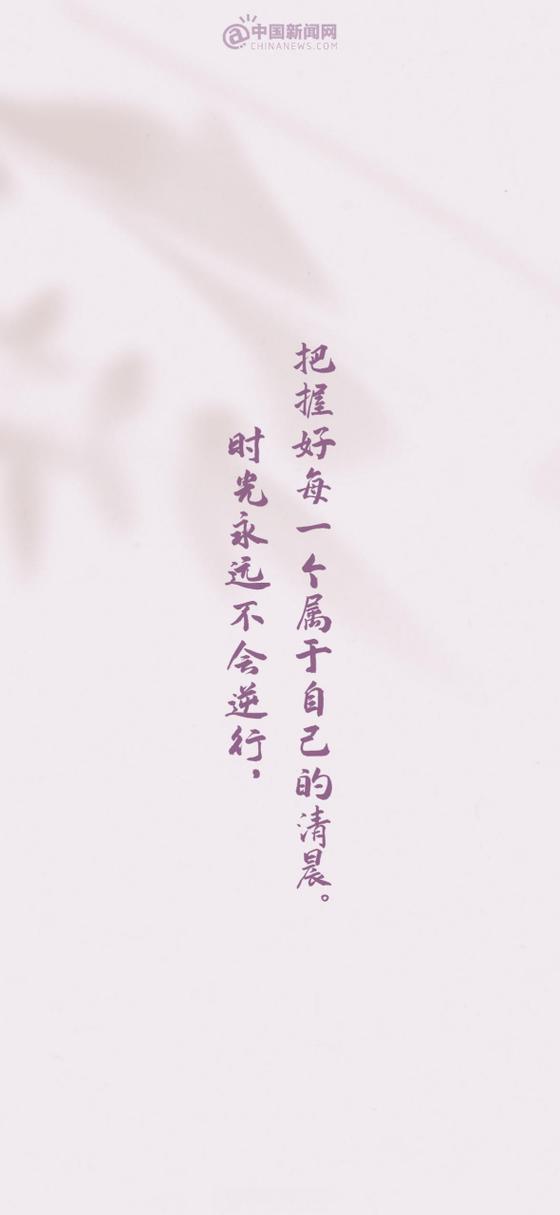 @中国新闻网
CHINANEWS.COM
时光永远不会逆行，
把握好每一个属于自己的清晨。